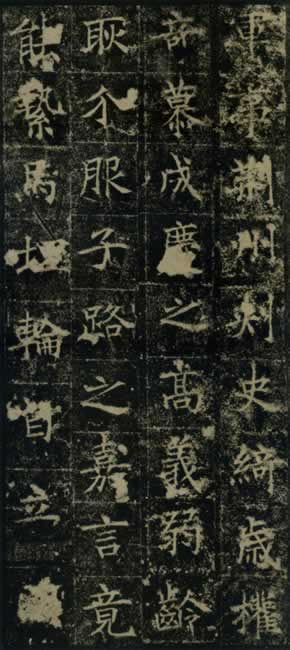 軍事荊州刾史綺歲權
奇慕成慶之高義弱齡
耿介服子路之嘉言竟
能縶馬埋輪自立